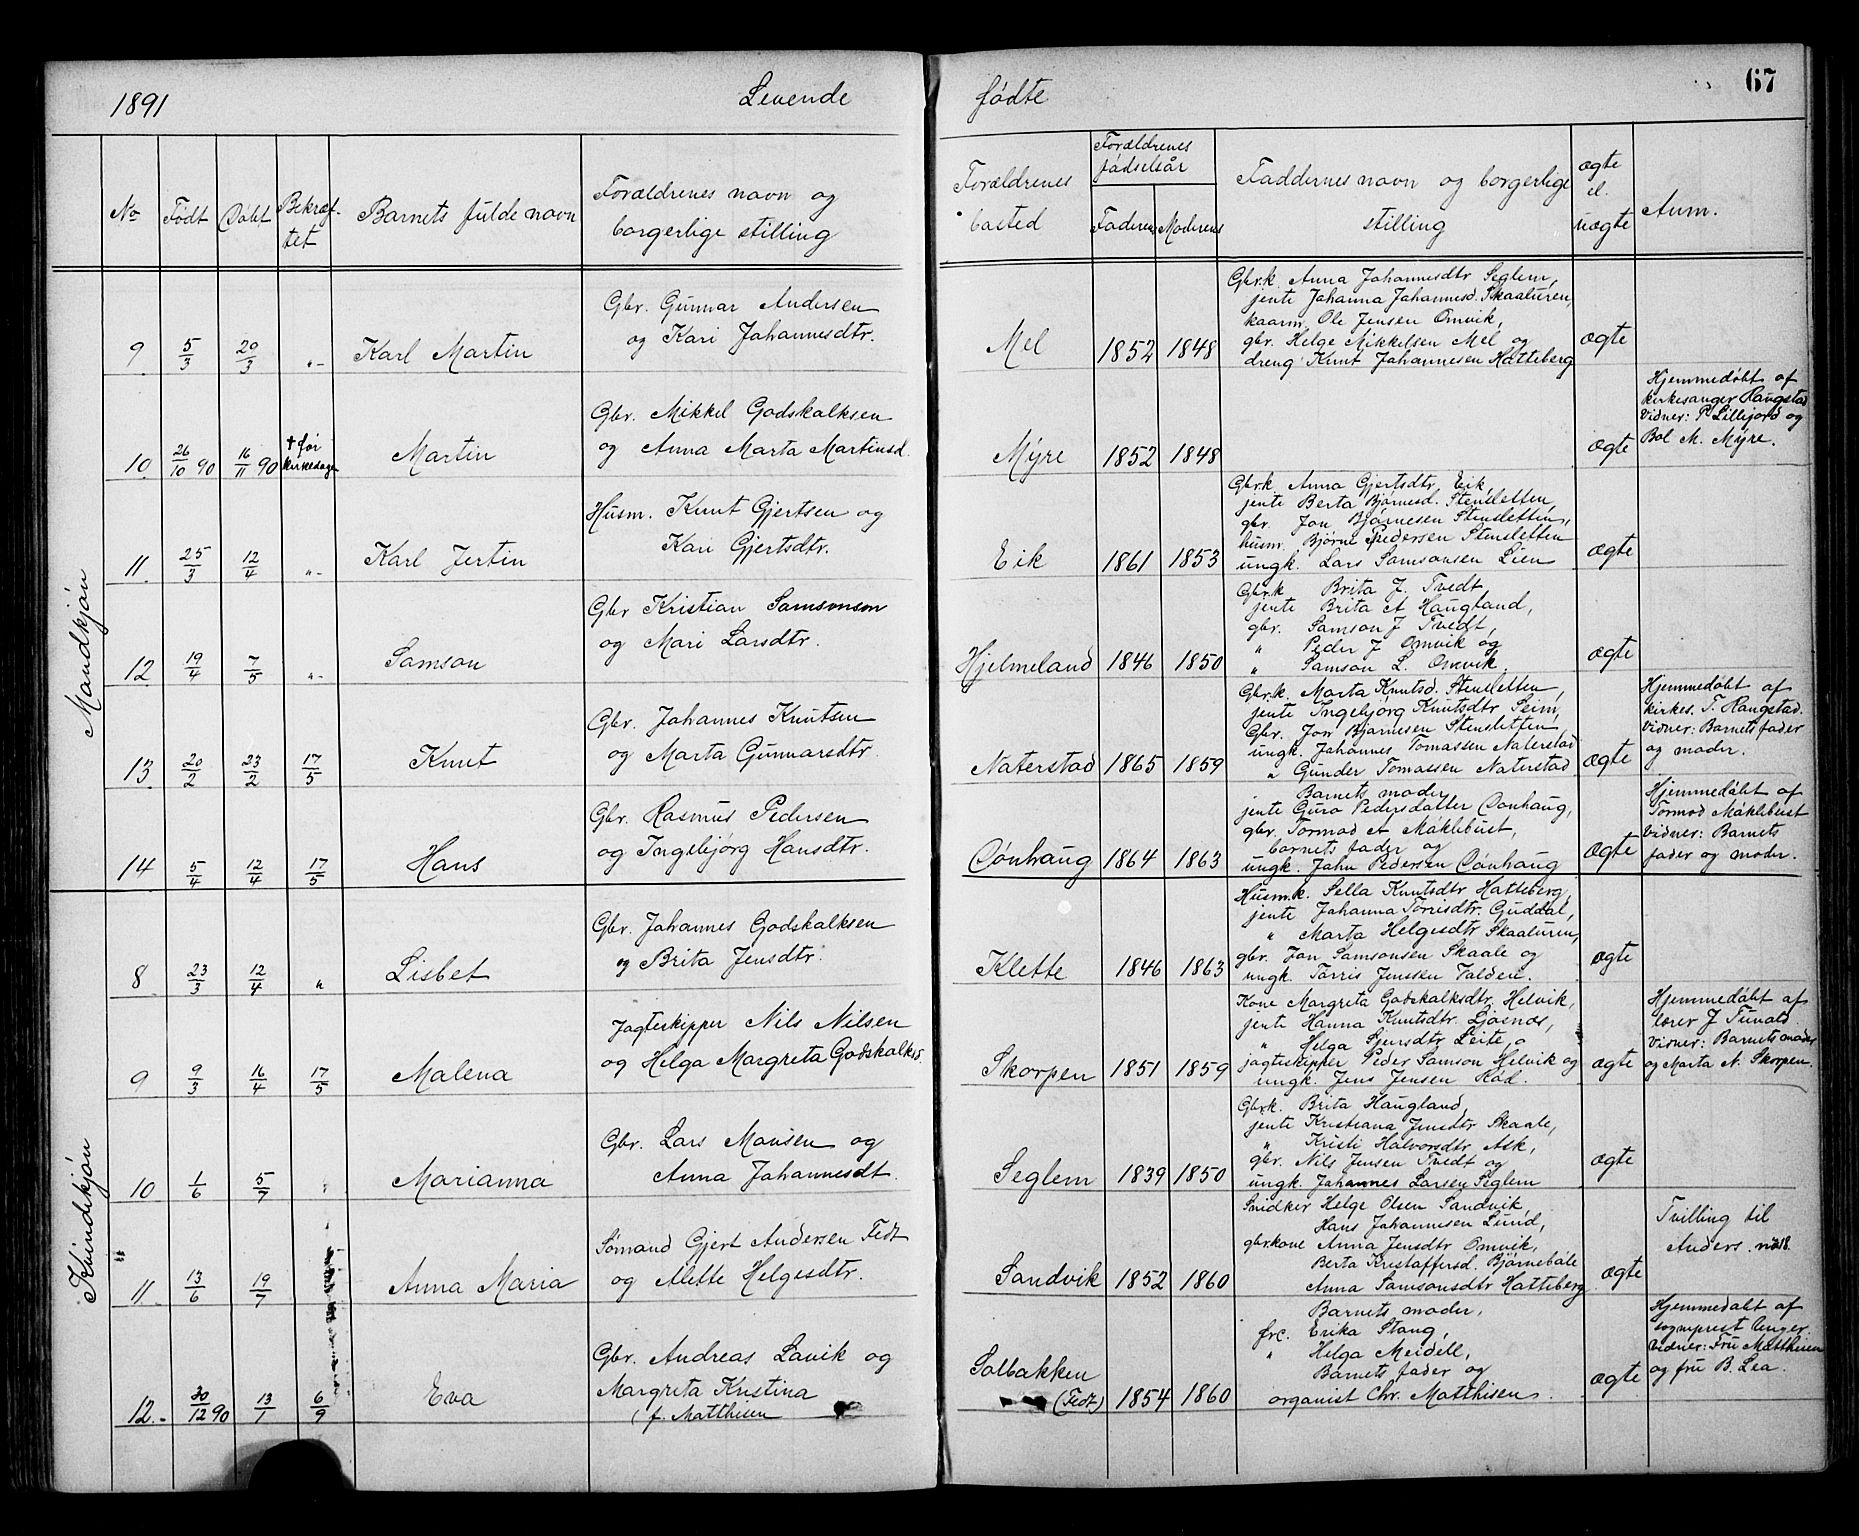 1891 Levende fødte 67
No Født Døbt Bekræf-tet Barnets fulde navn Forældrenes navn og borgerlige stilling Forældrenes bosted Forældrenes fødselsår Faderens Moderens Faddernes navn og borgerlige stilling ægte el. uægte Anm.
Mandkjøn
9 5/3 20/3 "- Karl Martin
Gbr. Gunnar Andersen
og Kari Johannesdtr.
Mel 1852 1848
Gbr.k. Anna Johannesdtr Seglem,
jente Johanna Johannesd. Skaaluren,
kaarm. Ole Jensen Omvik,
gbr. Helge Mikkelsen Mel og
dreng Knut Johannesen Hatteberg
ægte
10. 26/10 90 16/11 90 † før kirkedagen Martin
Gbr. Mikkel Godskalksen
og Anna Marta Martinsd.
Myre 1852 1848
ægte
Hjemmedøbt af
kirkesanger Haugstad
Vidner: P. Lillejord og
Bol M. Myre.
11. 25/3 12/4 "- Karl Jertin
Husm. Knut Gjertsen og
Kari Gjertsdtr.
Eik 1861 1853
Gbr.k Anna Gjertsdtr Eik,
jente Berta Bjørnesd. Stensletten,
gbr. Jon Bjørnesen Stensletten,
husm. Bjørne Pedersen Stensletten
ungk. Lars Samsonsen Lien
ægte
12 19/4 7/5 "- Samson
Gbr Kristian Samsonson
og Mari Larsdtr.
Hjelmeland 1846 1850
Gbr.k Brita J. Tvedt
jente Brita A Haugland,
gbr. Samson J Tvedt,
" Peder J Omvik og
" Samson L. Omvik.
ægte
13. 20/2 23/2 17/5 Knut
Gbr. Johannes Knutsen
og Marta Gunnarsdtr.
Naterstad 1865 1859
Gbr.k. Marta Knutsd. Stensletten,
jente Ingebjørg Knutsdtr Seim,
Gbr. Jon Bjørnesen Stensletten,
ungk. Johannes Tomassen Naterstad
" Gunder Tomassen Naterstad
ægte
Hjemmedøbt af
kirkes. T. Haugstad.
Vidner: Barnets fader
og moder.
14 5/4 12/4 17/5 Hans
Gbr. Rasmus Pedersen
og Ingebjørg Hansdtr.
Dønhaug 1864 1863
Barnets moder,
jente Guro Pedersdatter Dønhaug,
gbr. Tormod A Møklebust,
barnets fader og
ungk. John Pedersen Dønhaug
ægte
Hjemmedøbt af
Tormod Møklebust
Vidner: Barnets
fader og moder.
Kvindekjøn
8 23/3 12/4 " Lisbet
Gbr. Johannes Godskalksen
og Brita Jensdtr.
Klette 1846 1863
Husm.k. Sella Knutsdtr Hatteberg,
jente Johanna Torrisdtr. Guddal,
" Marta Helgesdtr Skaaluren,
gbr. Jon Samsonsen Skaale og
ungk. Torris Jenssen Valden.
ægte
9 9/3 16/4 17/5 Malena
Jagteskipper Nils Nilsen
og Helga Margreta Godskalksd.
Skorpen 1851 1859
Kone Margreta Godskalksdtr. Helvik,
jente Hanna Knutsdtr. Ljosnes,
" Helga Sjursdtr Leite,
jagteskipper Peder Samson Helvik og
ungk. Jens Jensen Rød.
ægte
Hjemmedøbt af
lærer J
Vidner: Barnets moder
og Marta N. Skorpen.
10 1/6 5/7 Marianna
Gbr. Lars Monsen og
Anna Johannesdt.
Seglem 1839 1850
Gbr.k. Brita Haugland,
jente Kristiana Jensdtr Skaale,
" Kristi Halvorsdtr Ask,
gbr. Nils Jensen Tvedt og
ungk. Johannes Larsen Seglem
ægte
11. 13/6 19/7 Anna Maria
Sømand Gjert Andersen Fedt
og Mette Helgesdtr.
Sandvik 1852 1860
Snidker Helge Olsen Sandvik,
Hans Johannesen Lund,
gbr.kone Anna Jensdtr Omvik,
Berta Kristoffersd. Bjørnebøle
Anna Samsonsdtr Hatteberg
ægte
Tvilling til
Anders no 18.
12. 30/12 90 13/1 6/9 Eva
Gbr. Andreas Lavik og
Margreta Kristina
(f. Matthisen
Solbakken
(Fedt) 1854 1860
Barnets moder,
frc. Erika Stang,
" Helga Meidell,
Barnets fader og
organist Chr. Matthisen.
ægte
Hjemmedøbt af
sognprest Unger.
Vidner: Fru Matthisen
og fru B. Lea.